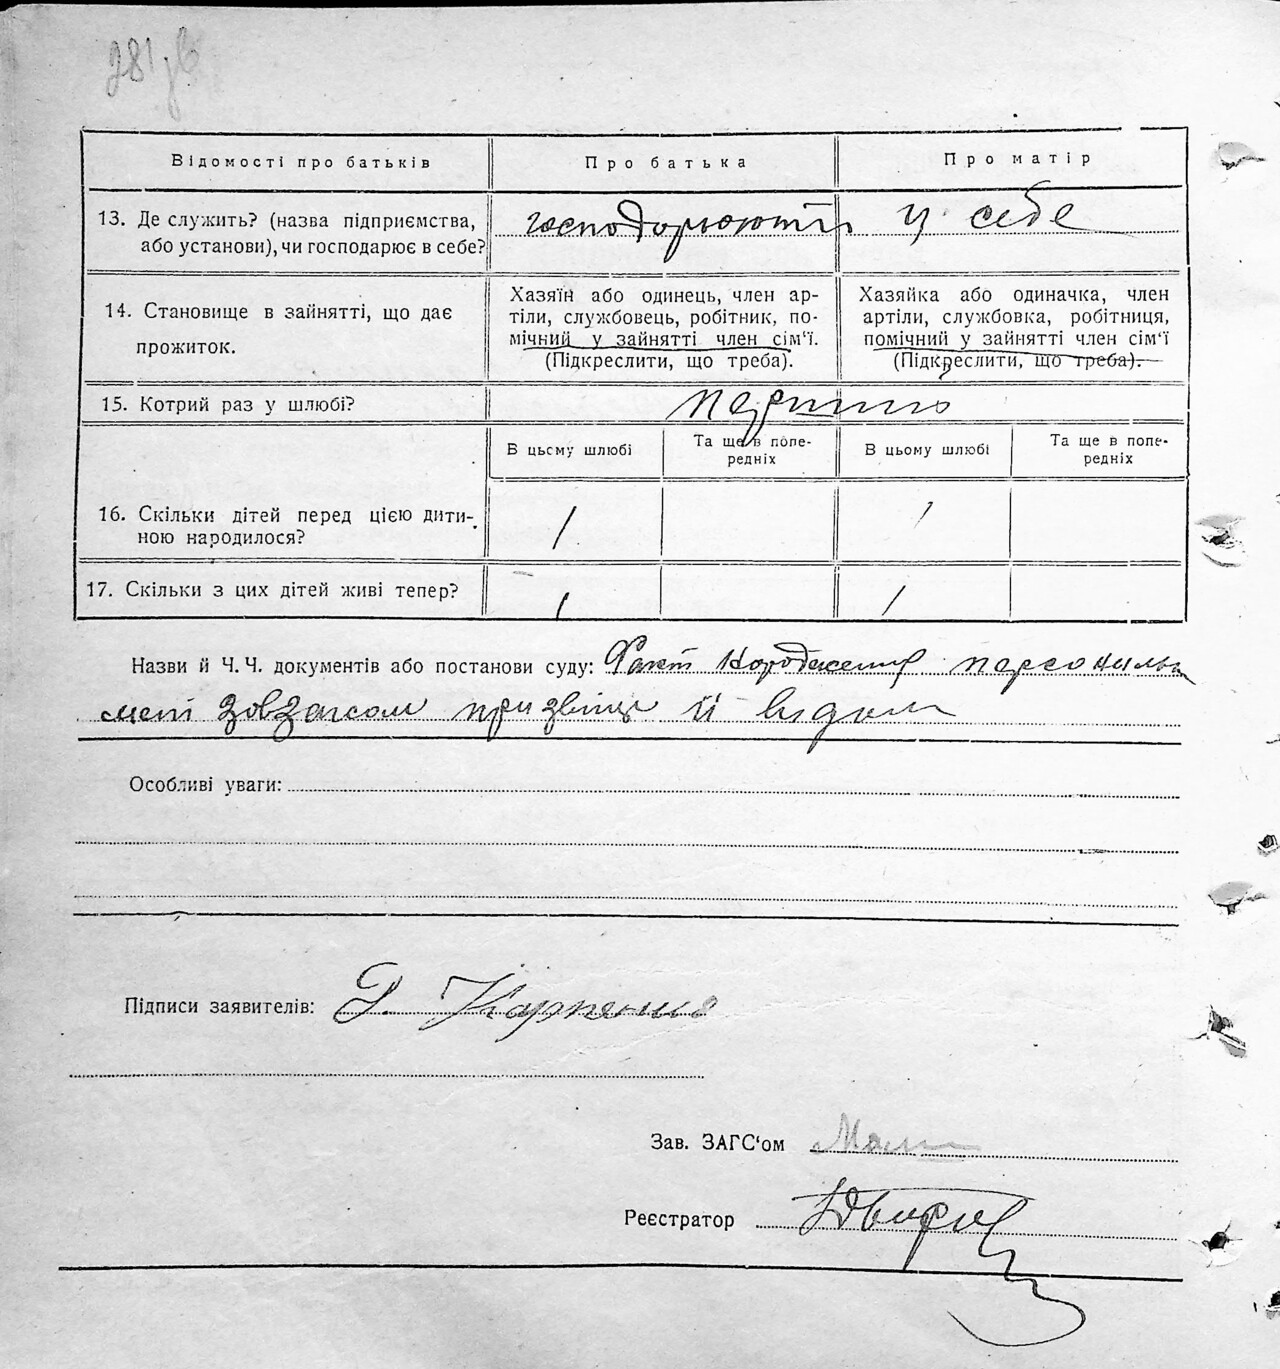 281 зв
Відомості про батьків Про батька Про матір
13. Де служить? (назва підприємства, або установи), чи господарює в себе? господорюють у себе
14. Становище в зайнятті, що дає прожиток.
Хазяїн або одинець, член ар-
тіли, службовець, робітник, по-
мічний у зайнятті член сім'ї.
(Підкреслити, що треба).
Хазяйка або одиначка, член
артіли, службовка, робітниця,
помічний у зайнятті член сім'ї
(Підкреслити, що треба).
15. Котрий раз у шлюбі?
В цьсму шлюбі Та ще в попе-
редніх
В цьому шлюбі Та ще в попе-
редніх
16. Скільки дітей перед цією дити-
ною народилося? 1 1
17. Скільки з цих дітей живі тепер? 1 1
Назви й Ч. Ч. документів або постанови суду: Факт народження персонально
мені зовзагсом призвіще й
Особливі уваги:
Підписи заявителів: Карпенко
Зав. ЗАГС'ом
Реєстратор